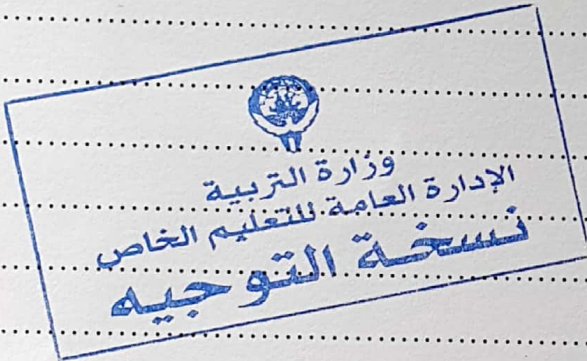 وزارة التربية
الإدارة العامة للتعليم الخاص
نسخة التوجيه